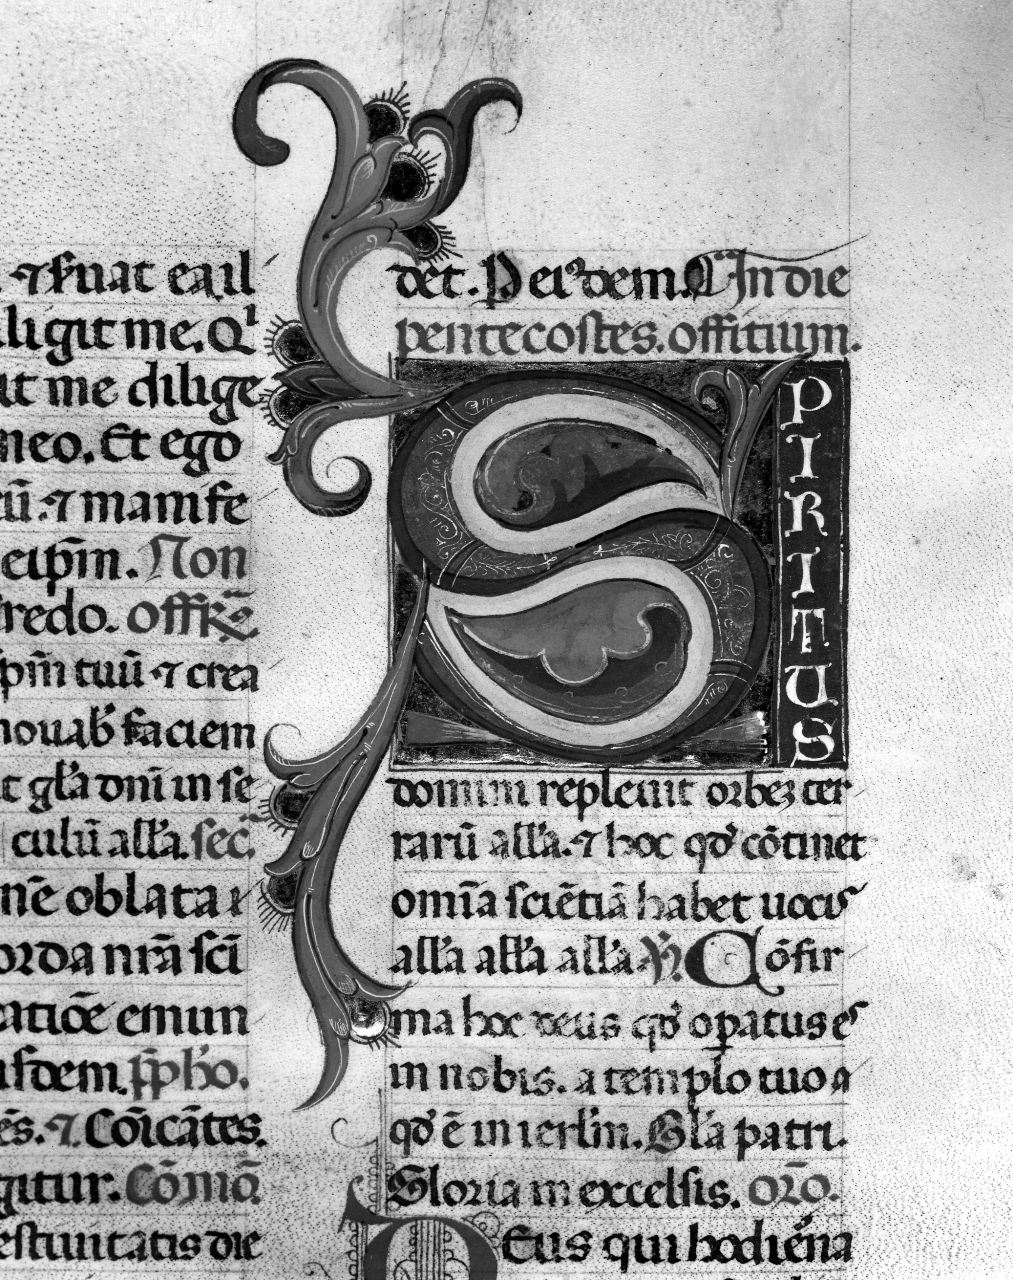 ⁊ ẜuat ea. il
ligit me. Qͥ
ut me dilige
neo. Et ego
⁊ manife
Non
credo. offr̄
sp̄m tuū ⁊ crea
nouab̓ faciem
gl̓a dn̄i in se
culū all̓a. sec̓.
oblata
nr̄a sc̄i
catiōe emun
⁊. Cōicātes.
Cōmō.
estiuitatis die
det. In die
pentecostes. offitium.
SPIRITUS
domini repleuit orbeꝫ ter
rarū all̓a. ⁊ hoc qd̓ cōtinet
omīa sciētiā habet uocis
all̓a all̓a all̓a. Cōfir
ma hoc deus qd̓ oꝑatus es
in nobis. a templo tuo
qd̓ ē in ierl̓m. Gl̓a patri.
Gloria in excelsis. orō.
Deus qui hodiēna